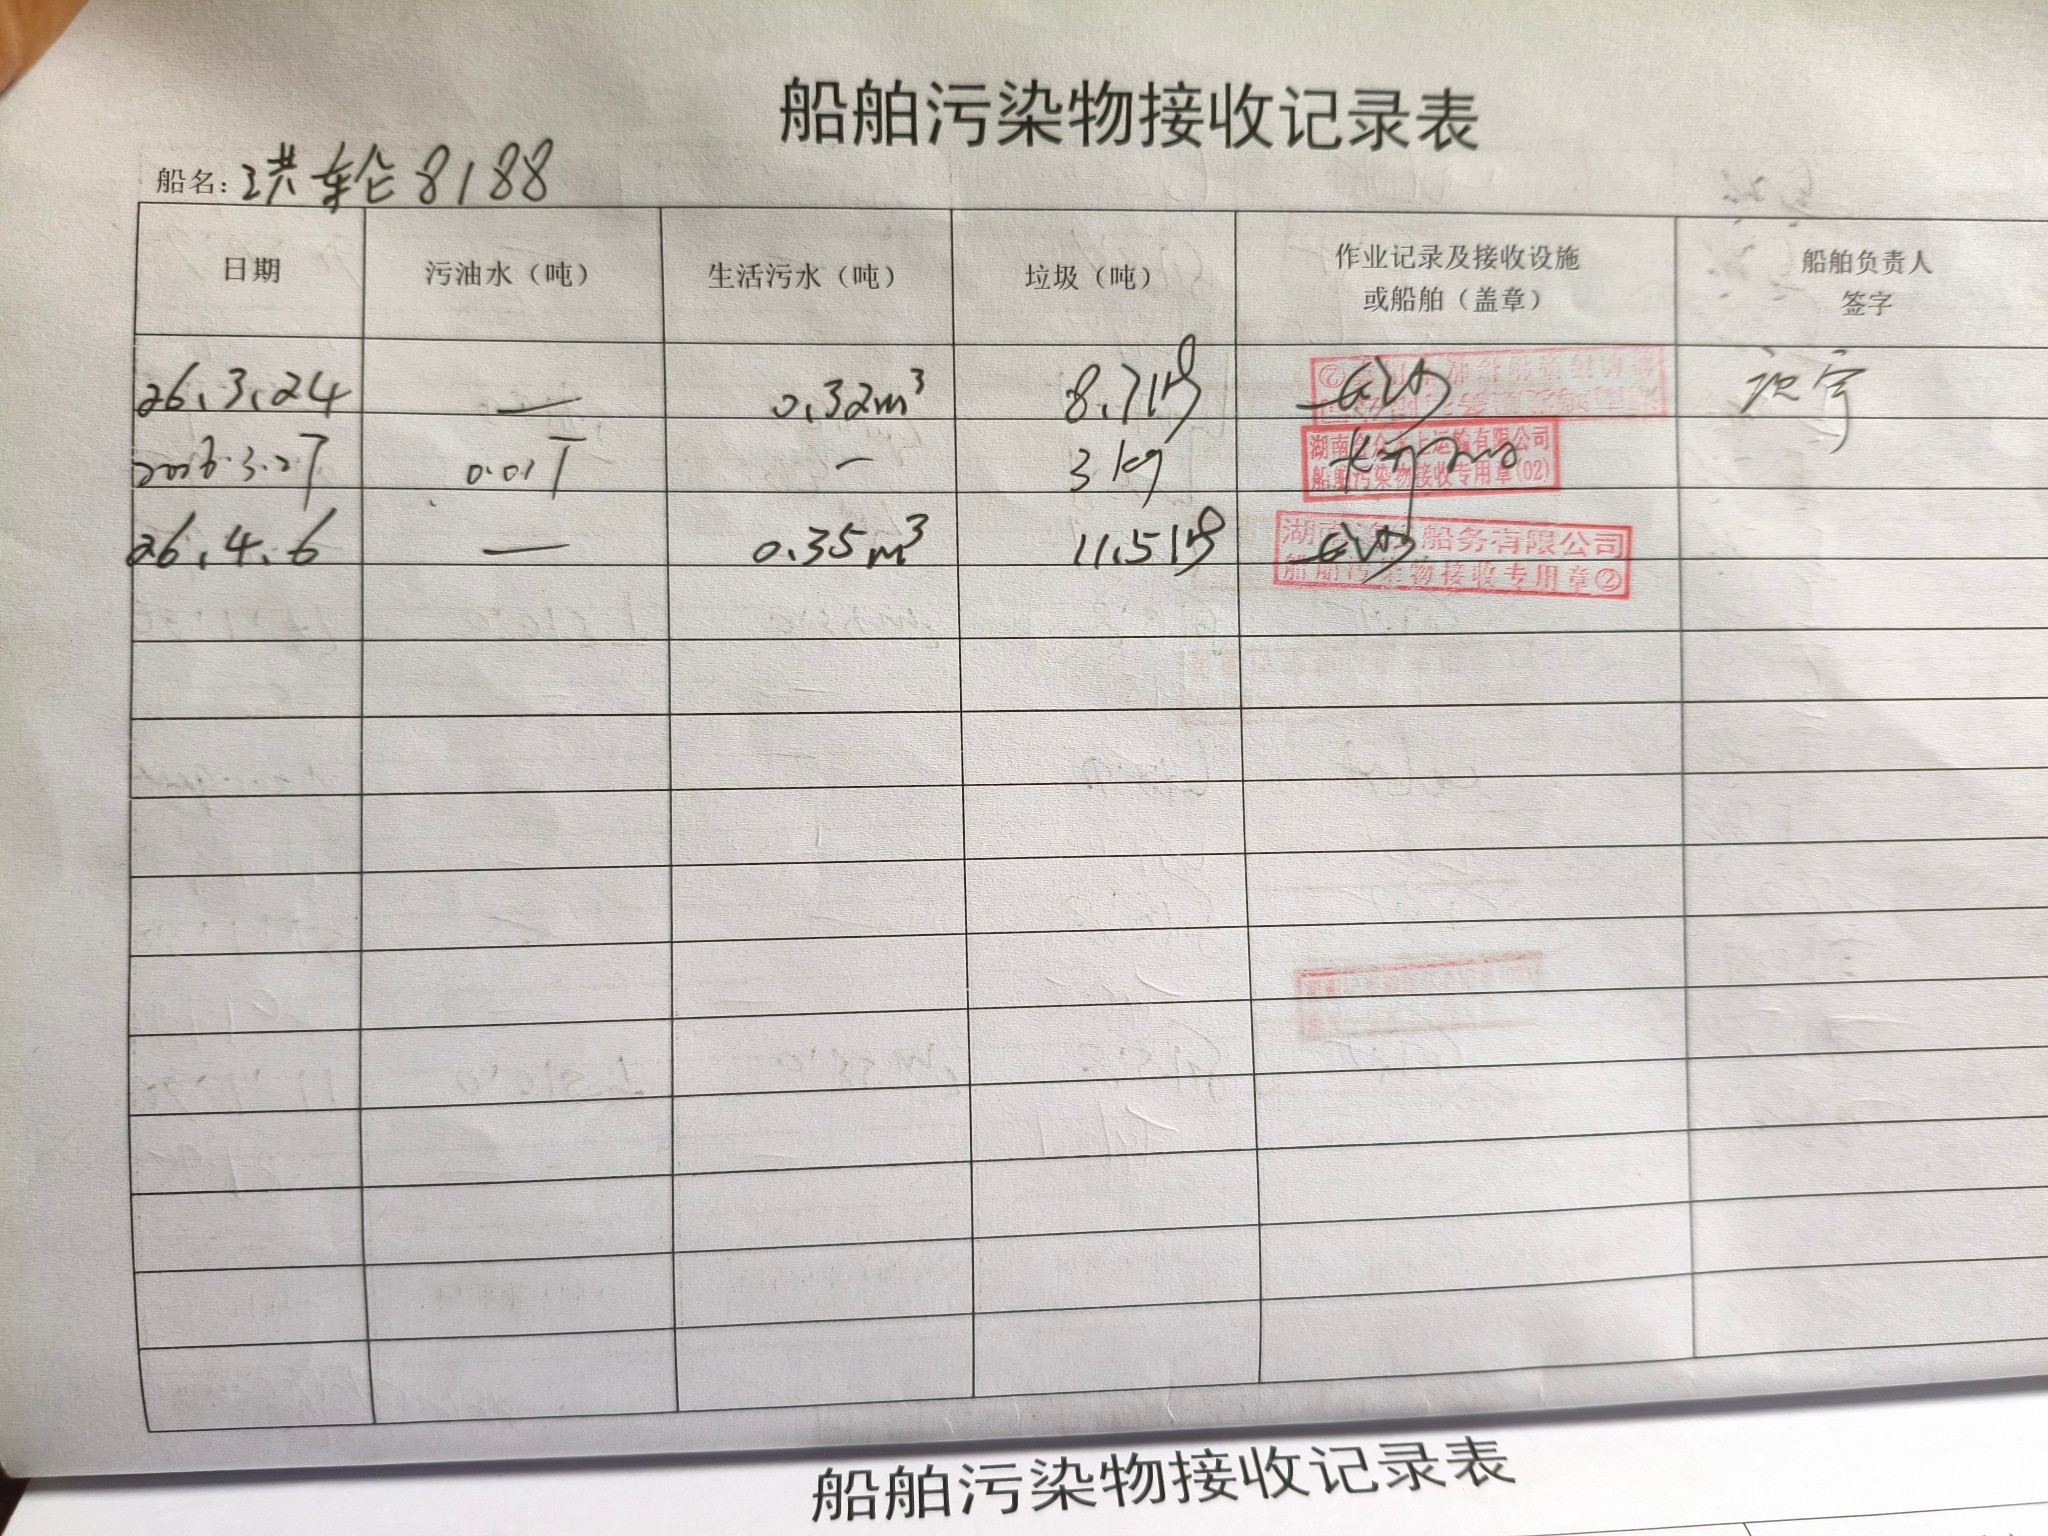 船舶污染物接收记录表
船名：洪轮8188
日期 污油水（吨） 生活污水（吨） 垃圾（吨） 作业记录及接收设施 或船舶（盖章） 船舶负责人 签字
26.3.24 — 0.32m³ 8.7kg
2026.3.27 0.01T — 3kg 湖南 众水上运输有限公司
船舶污染物接收专用章(02)
26.4.6 — 0.35m³ 11.5kg 湖南 船务有限公司
船舶污染物接收专用章②
船舶污染物接收记录表